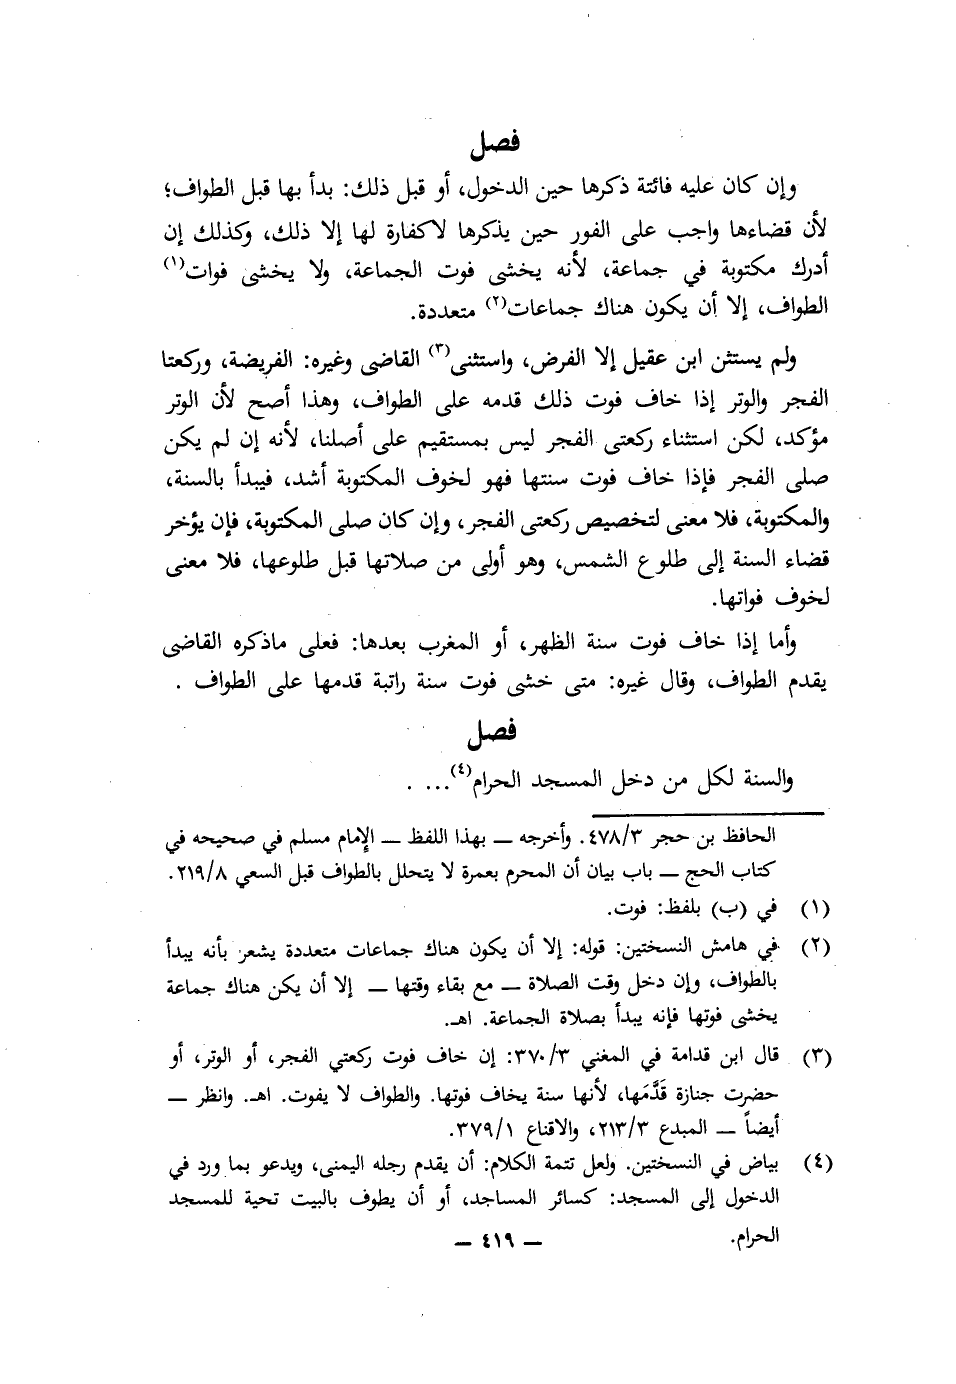 فصل
وإن كان عليه فائتة ذكرها حين الدخول، أو قبل ذلك: بدأ بها قبل الطواف؛
لأن قضاءها واجب على الفور حين يذكرها لاكفارة لها إلا ذلك، وكذلك إن
أدرك مكتوبة في جماعة، لأنه يخشى فوت الجماعة، ولا يخشى فوات(١)
الطواف، إلا أن يكون هناك جماعات(٢) متعددة.
ولم يستثن ابن عقيل إلا الفرض، واستثنى(٣) القاضي وغيره: الفريضة، وركعتا
الفجر والوتر إذا خاف فوت ذلك قدمه على الطواف، وهذا أصح لأن الوتر
مؤكد، لكن استثناء ركعتي الفجر ليس بمستقيم على أصلنا، لأنه إن لم يكن
صلى الفجر فإذا خاف فوت سنتها فهو لخوف المكتوبة أشد، فيبدأ بالسنة،
والمكتوبة، فلا معنى لتخصيص ركعتي الفجر، وإن كان صلى المكتوبة، فإن يؤخر
قضاء السنة إلى طلوع الشمس، وهو أولى من صلاتها قبل طلوعها، فلا معنى
لخوف فواتها.
وأما إذا خاف فوت سنة الظهر، أو المغرب بعدها: فعلى ماذكره القاضي
يقدم الطواف، وقال غيره: متى خشي فوت سنة راتبة قدمها على الطواف .
فصل
والسنة لكل من دخل المسجد الحرام(٤)... .
الحافظ بن حجر ٤٧٨/٣. وأخرجه ــ بهذا اللفظ ــ الإمام مسلم في صحيحه في
كتاب الحج ــ باب بيان أن المحرم بعمرة لا يتحلل بالطواف قبل السعي ٢١٩/٨.
(١) في (ب) بلفظ: فوت.
(٢) في هامش النسختين: قوله: إلا أن يكون هناك جماعات متعددة يشعر بأنه يبدأ
بالطواف، وإن دخل وقت الصلاة ــ مع بقاء وقتها ــ إلا أن يكن هناك جماعة
يخشى فوتها فإنه يبدأ بصلاة الجماعة. اهـ.
(٣) قال ابن قدامة في المغني ٣٧٠/٣: إن خاف فوت ركعتي الفجر، أو الوتر، أو
حضرت جنازة قَدَّمَها، لأنها سنة يخاف فوتها. والطواف لا يفوت. اهـ. وانظر ــ
أيضاً ــ المبدع ٢١٣/٣، والاقناع ٣٧٩/١.
(٤) بياض في النسختين. ولعل تتمة الكلام: أن يقدم رجله اليمنى، ويدعو بما ورد في
الدخول إلى المسجد: كسائر المساجد، أو أن يطوف بالبيت تحية للمسجد
الحرام.
ــ ٤١٩ ــ